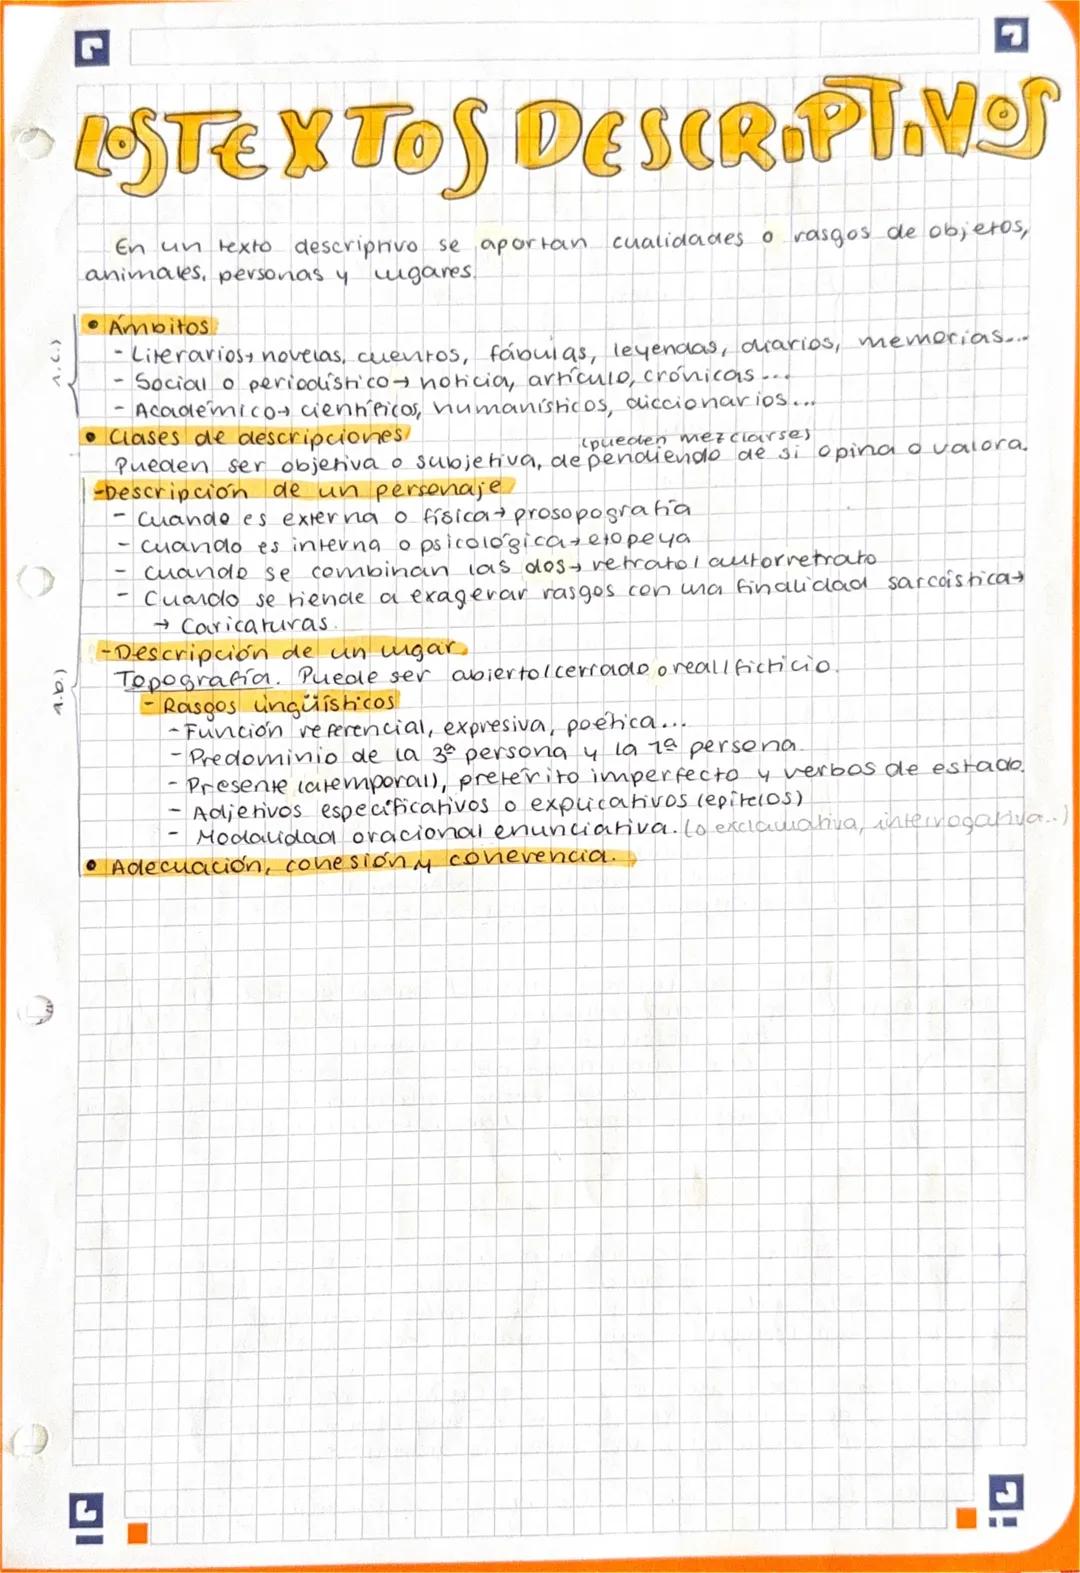 LOS TEXTOS DESCRIPTIVOS
En un texto descriptivo se aportan cualidades o rasgos de objetos,
animales, personas y lugares.
• Ámbitos
- Literarios→ novelas, cuentos, fábulas, leyendas, diarios, memorias...
- Social o periodístico→ noticia, artículo, crónicas...
- Académico→ científicos, humanísticos, diccionarios...
1.c.)
• Clases de descripciones
(pueden mezclarse)
Pueden ser objetiva o subjetiva, dependiendo de si opina o valora.
-Descripción de un personaje
- Cuando es externa o física→ prosopografía
- Cuando es interna o psicológica→ etopeya
- Cuando se combinan las dos→ retrato/autorretrato
- Cuando se tiende a exagerar rasgos con una finalidad sarcástica→
→ Caricaturas.
-Descripción de un lugar
Topografía. Puede ser abierto/cerrado o real/ficticio.
1.b.)
- Rasgos lingüísticos
- Función referencial, expresiva, poética...
- Predominio de la 3ª persona y la 1ª persona.
- Presente (atemporal), pretérito imperfecto y verbos de estado.
- Adjetivos especificativos o explicativos (epítetos)
- Modalidad oracional enunciativa. (o exclamativa, interrogativa..)
• Adecuación, cohesión y coherencia.